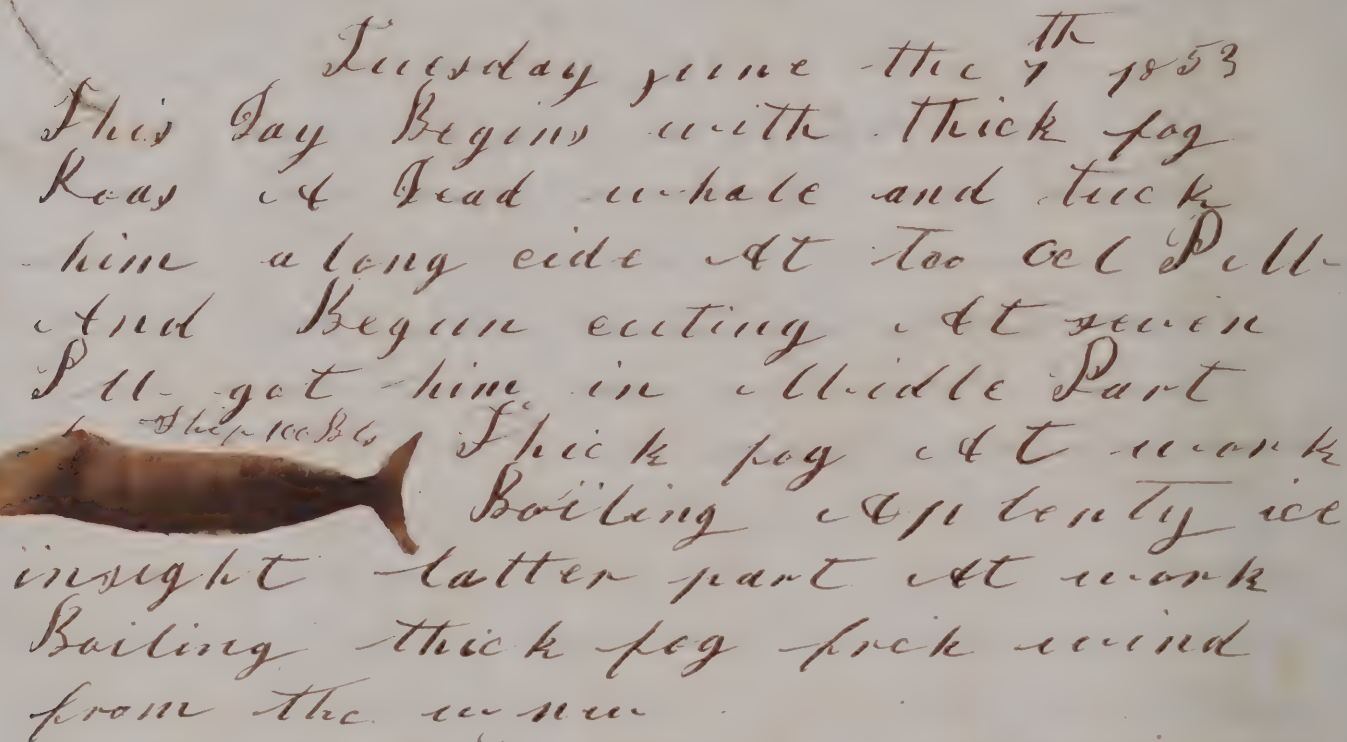 Tuesday june the 7th 1853
This Day Begins with thick fog
Reas A Dead whale and tuck
him a long cide At Too Ocl P.M.
And Begun cuting At sevin
P M. got him in Midle Part
Ship 100 Bls
Thick fog At work
Boiling A plenty ice
insight latter part At work
Boiling thick fog frek wind
from the w n w